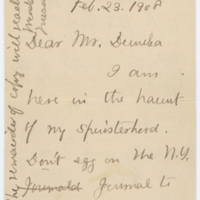 Feb. 23. 1908
Dear Mr.
I am
here in the haunt
of my spinsterhood.
Don't egg on the N.Y.
Journald Journal to
The remainder of copy will reach